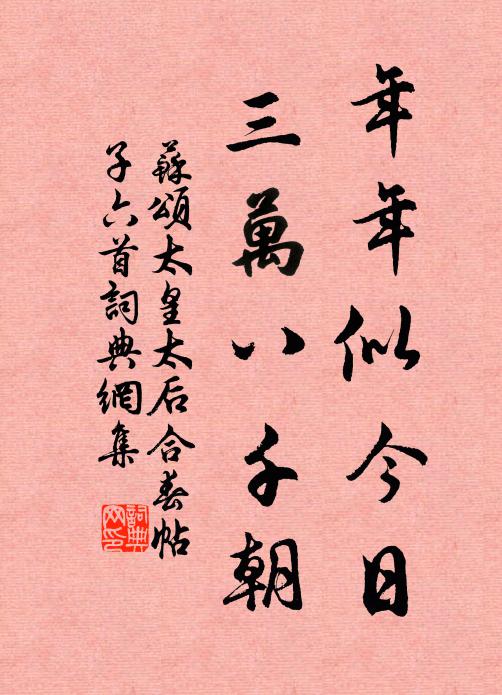 年年似今日
三萬八千朝
蘇頌太皇太后合春帖
子六首詞典網集
詞典
网印